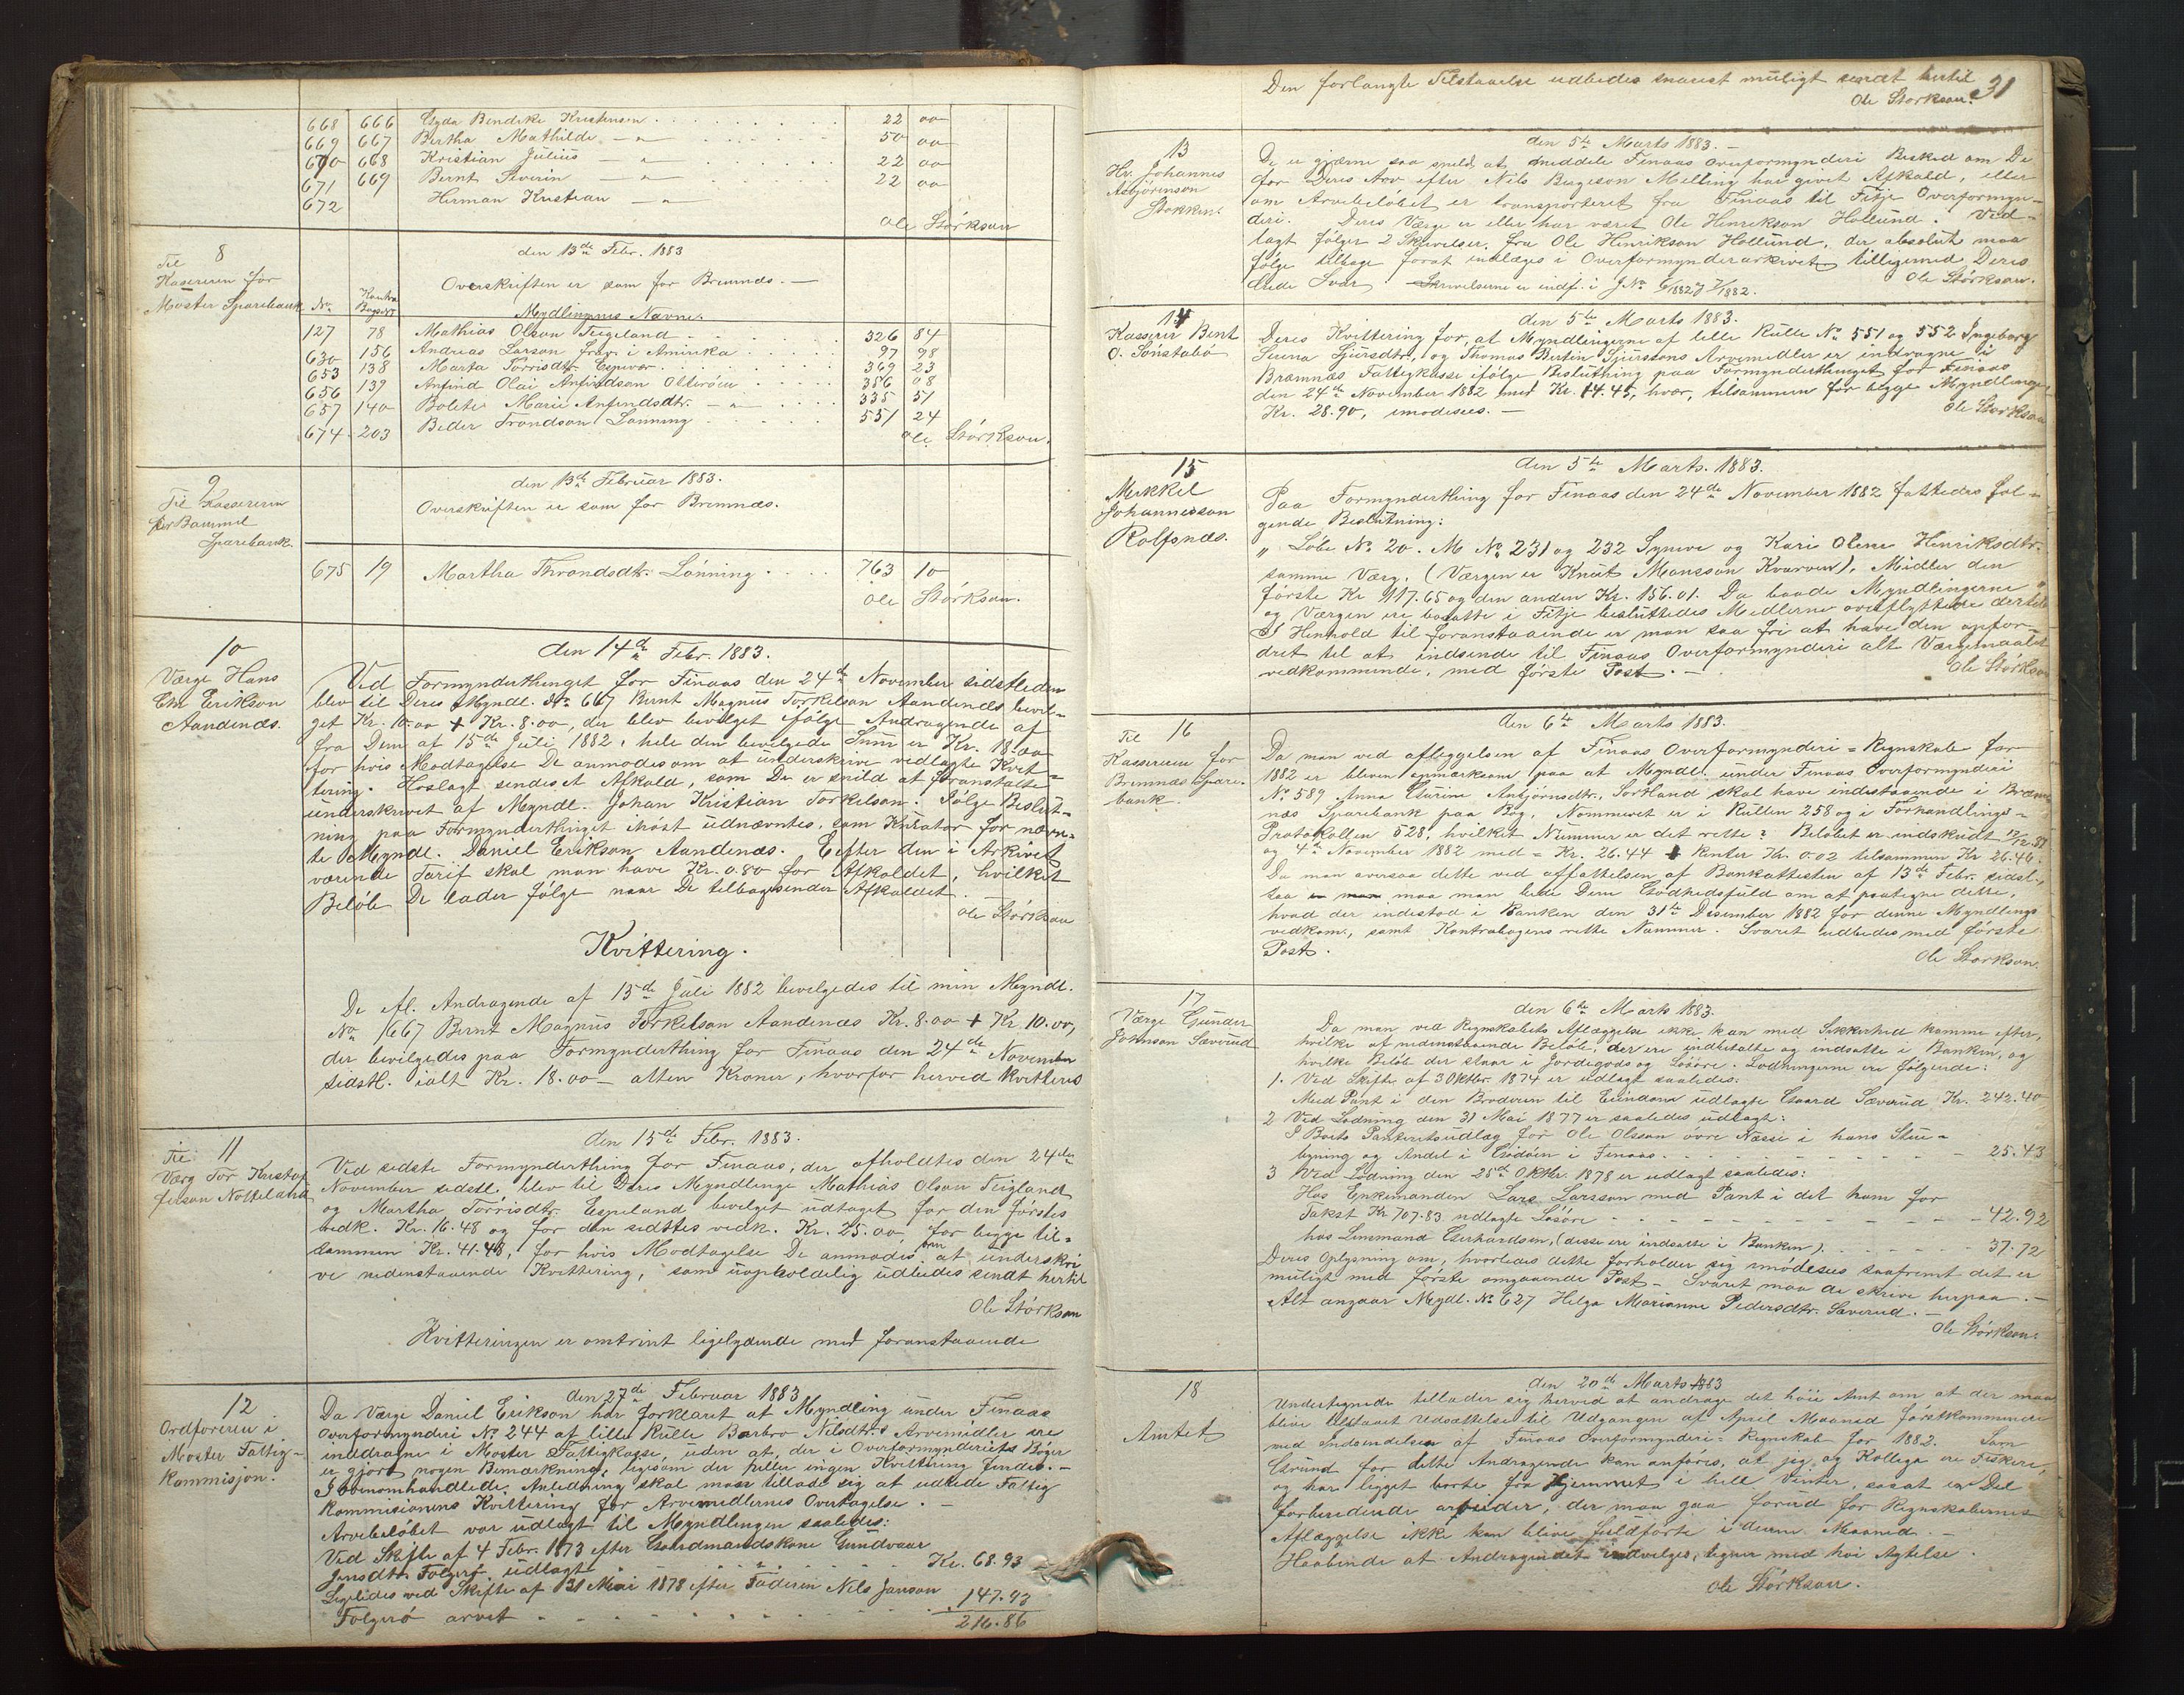 668 666 Gyda Bendike Kristensen . . . . 22 00
669 667 Bertha Mathilde — " — . . . . 50 00
670 668 Kristian Julius — " — . . . . 22 00
671 669 Bernt Severin — " — . . . . 22 00
672 Herman Kristian — " —
Ole Størkson
8
Til
Kasereren for
Moster Sparebank
den 13de Febr. 1883
Overskriften er som for Bremnæs. —
No. Kontra Bogs No Myndlingens Navne.
127 78 Mathias Olson Teigeland . . . . 326 84
630 156 Andreas Larson frav. i Amerika . . . . 97 98
653 138 Marta Torrisdtr. Espevær . . . . 369 23
656 139 Anfind Olai Anfindson Otterøen . . . . 386 08
657 140 Bolete Marie Anfindsdtr. — " — . . . . 335 51
674 203 Beder Trondson Lønning . . . . 551 24
Ole Størkson.
9
Til Kassereren
for Bømmel
Sparebank.
den 13de Februar 1883.
Overskriften er som for Bremnæs.
675 19 Martha Throndsdtr. Lønning . . . . 763 10
Ole Størkson.
10
Værge Hans
Chr Erikson
Aandenæs.
den 14de Febr. 1883.
Ved Formynderthinget for Finaas den 24de November sidstleden
blev til Deres Myndl. No. 667 Bernt Magnus Torkelson Aandenæs bevil-
get Kr. 10.00 + Kr. 8.00, der blev bevilget ifølge Andragende af
fra Dem af 15de Juli 1882, hele den bevilgede Sum er Kr. 18.00
for hvis Modtagelse De anmodes om at underskrive vedlagte Kvit-
tering. Hoslagt sendes et Afkald, som De er snild at foranstalte
underskrevet af Myndl. Johan Kristian Torkelson. Ifølge Beslut-
ning paa Formynderthinget ihøst udnævntes, som Kurator for nævn-
te Myndl. Daniel Erikson Aandenæs. Eefter den i Arkivet
værende Tarif skal man have Kr. 0.80 for Afkaldet, hvilket
Beløb De lader følge naar De tilbagesender Afkaldet.
Ole Størkson
Kvittering.
De Afl. Andragende af 15de Juli 1882 bevilgedes til min Myndl.
No. 667 Bernt Magnus Torkelson Aandenæs Kr. 8.00 + Kr. 10.00,
der bevilgedes paa Formynderthing for Finaas den 24de November
sidstl. ialt Kr. 18.00 — atten Kroner, hvorfor herved kvitteres
11
Til
Værg Tor Kristof-
ferson Notteland
den 15de Febr. 1883.
Ved sidste Formynderthing for Finaas, der afholdtes den 24de
November sidstl. blev til Deres Myndlinge Mathias Olson Teigland
og Martha Torrisdtr. Espeland bevilget udtaget for den førstes
vedk. Kr. 16.48 og for den sidstes vedk. Kr. 25.00, for begge til-
sammen Kr. 41.48, for hvis Modtagelse De anmodes om at underskri
ve nedenstaaende Kvittering, som uopholdelig udbedes sendt hertil
Ole Størkson
Kvitteringen er omtrint ligelydende med foranstaaende
12
Ordføreren i
Moster Fattig-
kommisjon.
den 27de Februar 1883
Da Værge Daniel Erikson har forklaret at Myndling under Finaas
Overformynderi No. 244 af lille Rulle Barbro Nilsdtr.s Arvemidler ere
inddragne i Moster Fattigkasse, uden at der i Overformynderiets Bøger
er gjort nogen Bemærkning, ligesom der heller ingen Kvittering findes. —
I ovenomhandlede Anledning skal man tillade sig at udbede Fattig
kommisionens Kvittering for Arvemidlernes Overtagelse. —
Arvebeløbet var udlagt til Myndlingen saaledes:
Ved Skifte af 4 Febr. 1873 efter Gaardmandskone Gundvaar
Jonsdtr. Folgerø udlagt . . . . Kr. 68.93
Ligeledes ved Skifte af 31 Mai 1878 efter Faderen Nils Janson
Folgerø arvet . . . . 147.93
216.86
Den forlangte Tilstaaelse udbedes snarest muligt sendt hertil
Ole Størkson.
31
13
Hr. Johannes
Asbjørnson
Stokken.
den 5te Marts 1883. —
De er gjærne saa snild at meddele Finaas Overformynderi Besked om De
for Deres Arv efter Nils Birgeson Melling har givet Afkald, eller
om Arvebeløbet er transporteret fra Finaas til Fitje Overformyn-
deri. Deres Værge er eller har været Ole Henrikson Hollund. Ved-
lagt følger 2 Skrivelser, fra Ole Henrikson Hollund, der absolut maa
følge tilbage forat indlæges i Overformynderarkivet tilligemed Deres
Ærede Svar. Skrivelserne er indf. i J No 6/1882 og 7/1882.
Ole Størkson.
14
Kasserer Bent
O. Sønstabø
den 5te Marts 1883.
Deres Kvittering for, at Myndlingerne af lille Rulle No. 551 og 552 Ingeborg
Serina Sjursdtr., og Thomas Bertin Sjurssons Arvemidler er inddragne i
Bræmnæs Fattigkasse ifølge Beslutning paa Formynderthinget for Finaas
den 24de November 1882 med Kr. 14.45, hver, tilsammen for begge Myndlinge
Kr. 28.90, imødesees. —
Ole Størkson
15
Mikkel
Johannesson
Rolfsnæs.
den 5te Marts. 1883.
Paa Formynderthing for Finaas den 24de November 1882 fattedes føl-
gende Beslutning:
„ Løbe No. 20. M No. 231 og 232 Synve og Kari Olene Henriksdtr.
samme Værg. (Værgen er Knut Monsson Kvarven). Midler den
første Kr 117.65 og den anden Kr. 156.01. Da baade Myndlingerne
og Værgen ere bosatte i Fitje besluttedes Midlerne overflyttede dertil"
I Henhold til foranstaaende er man saa fri at have den opfor-
dret til at indsende til Finaas Overformynderi alt Værgemaalet
vedkommende, med første Post. —
Ole Størkson
16
Til
Kassereren for
Bremnæs Spare-
bank.
den 6te Marts 1883.
Da man ved aflæggelsen af Finaas Overformynderi = Regnskab for
1882 er bleven opmærksom paa at Myndl. under Finaas Overformynderi
No. 589 Anna Gurine Asbjørnsdtr. Sortland skal have indestaaende i Bræm-
næs Sparebank paa Bog. Nommeret er i Rullen 258 og i Forhandlings-
Protokollen 528, hvilket Nummer er det rette? Beløbet er indskudt
og 4de November 1882 med = Kr. 26.44 + Renter Kr. 0.02 tilsammen Kr 26.46.
Da man oversaa dette ved affattelsen af Bankattesten af 13de Febr. sidstl.,
saa maa man bede Dem Godhedsfuld om at paategne dette,
hvad der indestod i Banken den 31te Desember 1882 for denne Myndlings
vedkom., samt Kontrabogens rette Nummer. Svaret udbedes med første
Post.
Ole Størkson.
17
Værge Gunder
Johnson Sæverud
den 6te Marts 1883.
Da man ved Regnskabets Aflæggelse ikke kan med Sikkerhed komme efter,
hvilke af nedenstaaende Beløb, der ere indbetalte og indsatte i Banken, og
hvilke Beløb der staar i Jordegods og Løsøre. Lodningerne ere følgende:
1. Ved Skifte af 3 Oktbr. 1874 er udlagt saaledes:
Med Pant i den Broderen til Eiendom udlagte Gaard Sæverud Kr. 242.40
2 Ved Lodning den 31 Mai 1877 er saaledes udlagt:
I Boets Panterets udlæg for Ole Olsson øvre Næsse i hans Stue-
bygning og Andel i Gjødøen i Finaas . . . . 25.43
3 Ved Lodning den 25de Oktbr. 1878 er udlagt saaledes:
Hos Enkemanden Lars Larsson med Pant i det ham for
Takst Kr 707.83 udlagte Løsøre — — — 42.92
hos Lensmand Gerhardsen, (disse ere indsatte i Banken). . . . 37.72
Deres Oplysning om, hvorledes dette forholder sig imødesees saafremt det er
muligt med første omgaaende Post — Svaret maa de skrive herpaa. —
Alt angaar Mydl. No. 627 Helga Marianne Pedersdtr. Sæverud. —
Ole Størkson.
18
Amtet
den 20de Marts 1883
Undertegnede tillader sig herved at andrage det høie Amt om at der maa
blive tilstaaet Udsættelse til Udgangen af April Maaned førstkommende
med Indsendelsen af Finaas Overformynderi = Regnskab for 1882. Som
Grund for dette Andragende kan anføres, at jeg og Kollega ere Fiskere,
og har ligget borte fra Hjemmet i hele Vinter, saaat en Del
forberedende arbeider, der maa gaa forud for Regnskabernes
Aflæggelse ikke kan blive fuldførte i denne Maaned. —
Haabende at Andragendet indvilges, tegner med høi Agtelse.
Ole Størkson.